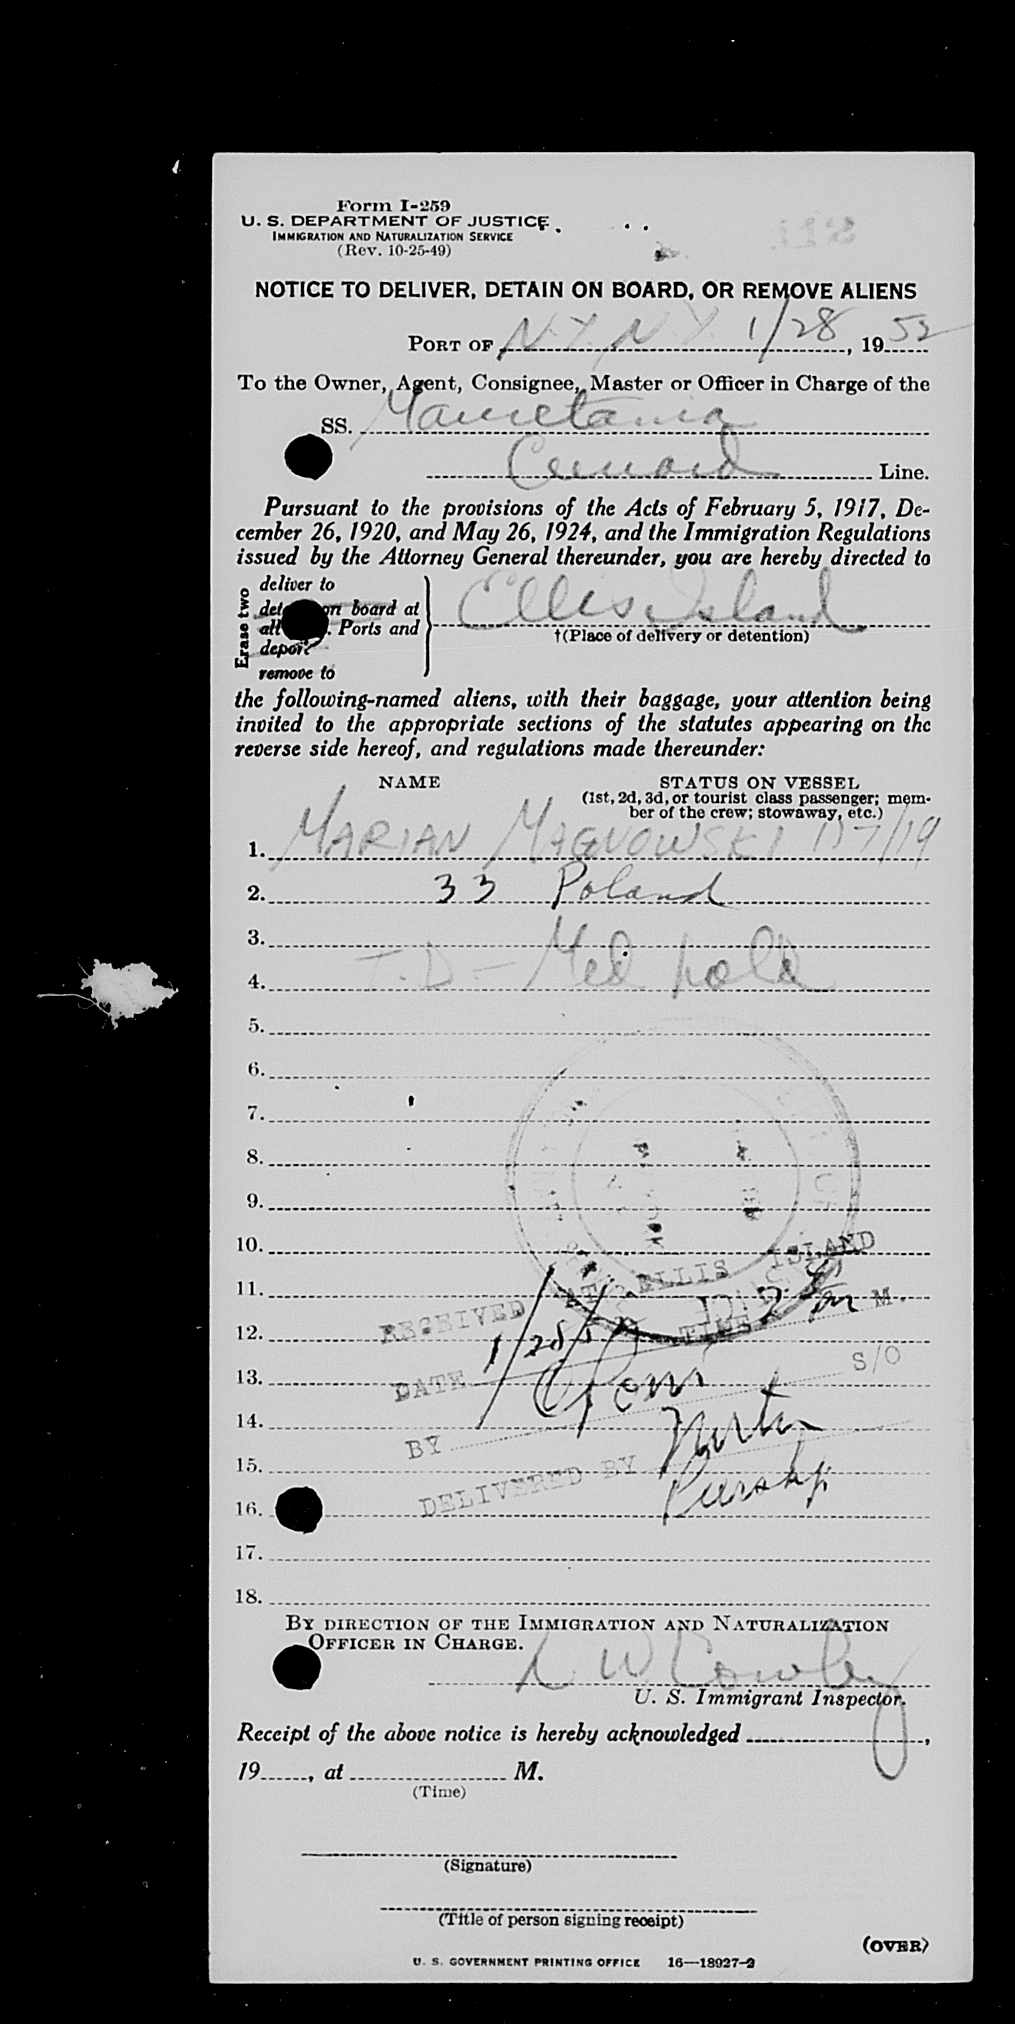 Form I-259
U. S. DEPARTMENT OF JUSTICE
IMMIGRATION AND NATURALIZATION SERVICE
(Rev. 10-25-49)
NOTICE TO DELIVER, DETAIN ON BOARD, OR REMOVE ALIENS
PORT OF N.Y. N.Y. 1/28, 19 52
To the Owner, Agent, Consignee, Master or Officer in Charge of the
SS. Mauretania
Cunard Line.
Pursuant to the provisions of the Acts of February 5, 1917, De-
cember 26, 1920, and May 26, 1924, and the Immigration Regulations
issued by the Attorney General thereunder, you are hereby directed to
Erase two
deliver to
on board at
Ports and
deport
remove to
Ellis Island
†(Place of delivery or detention)
the following-named aliens, with their baggage, your attention being
invited to the appropriate sections of the statutes appearing on the
reverse side hereof, and regulations made thereunder:
NAME STATUS ON VESSEL
(1st, 2d, 3d, or tourist class passenger; mem-
ber of the crew; stowaway, etc.)
1. MARIAN MAGNOWSKI 117/19
2. 33 Poland
3.
4. T.D - Med hold
5.
6.
7.
8.
9.
10.
11.
12.
13.
14.
15.
16.
17.
18.
RECEIVED AT ELLIS ISLAND
DATE 1/28/52 TIME M.
S/O
BY
DELIVERED BY
BY DIRECTION OF THE IMMIGRATION AND NATURALIZATION
OFFICER IN CHARGE.
U. S. Immigrant Inspector.
Receipt of the above notice is hereby acknowledged ,
19 , at M.
(Time)
(Signature)
(Title of person signing receipt)
(OVER)
U. S. GOVERNMENT PRINTING OFFICE 16—18927-2